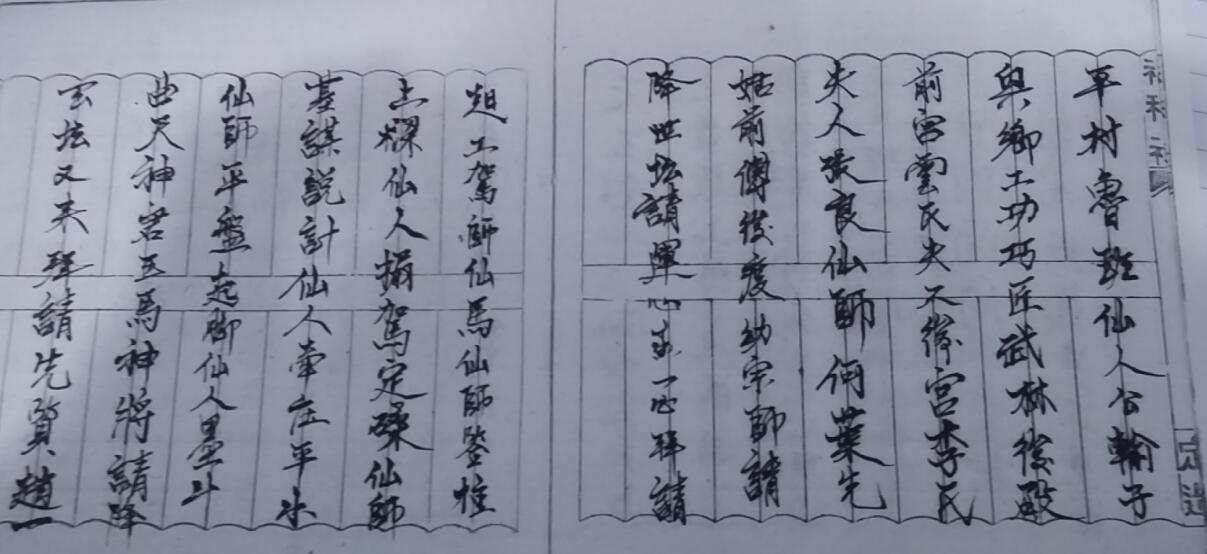 平村魯班仙人公輸子
與鄉土功巧匠武林後殿
前宮雲氏夫人後宮李氏
夫人張良仙師何葉先
姑前傳後度幼宗師請
降世坛請運心一心拜請
工駕師仙馬仙師登樁
土樑仙人搨駕定磉仙師
墓謀説計仙人牽庄平水
仙師平盤起脚仙人墨斗
曲尺神君五馬神將請降
玄坛又来拜請先賢趙一